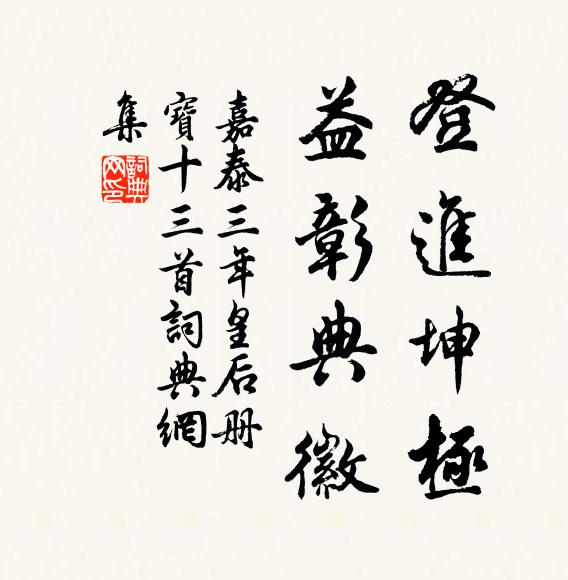 登進坤極
益彰典徽
嘉泰三年皇后册
寶十三首詞典網
集
詞典網印